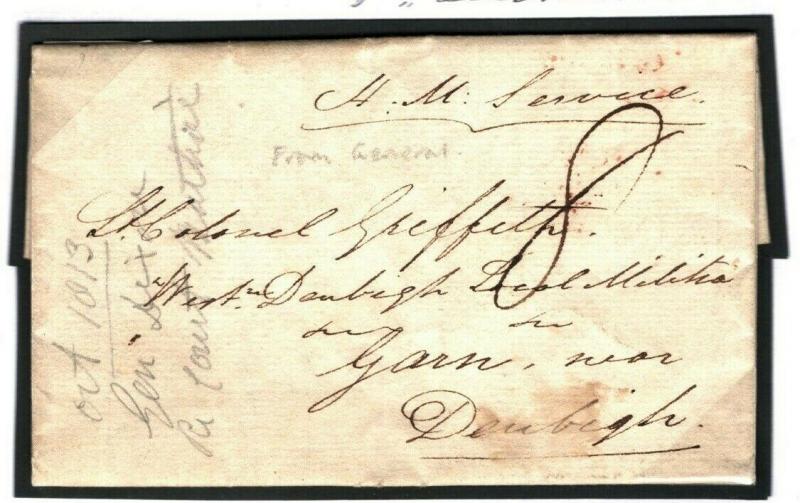 H. M. Service.
From General.
8
Lt. Colonel Griffith.
Westn. Denbigh Local Militia
Garn, near
Denbigh.
Oct 1813
Gen
Re Court Martial